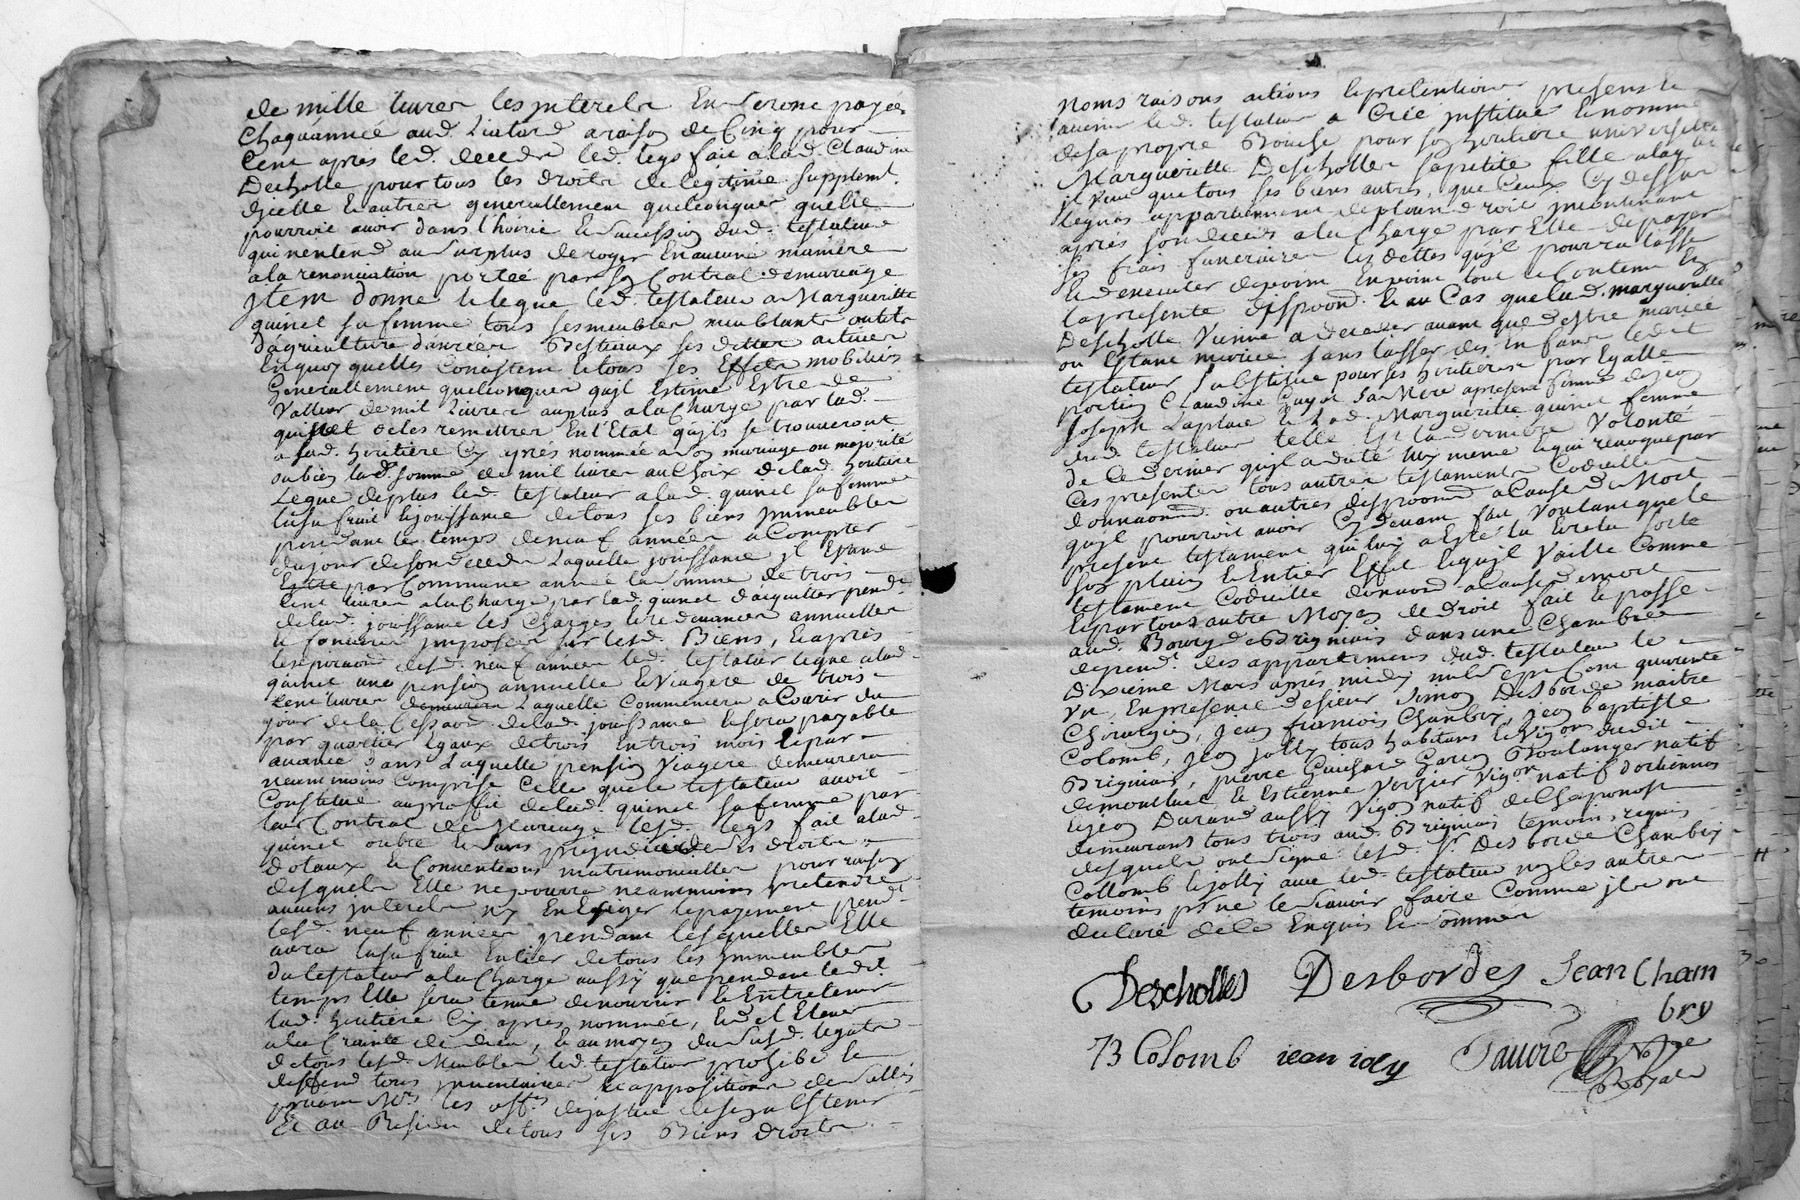 de mille livres les interets En seront payés
Chaque année aud. Liatard a raison de Cinq pour
Cent apres led. decedz led. legs fait a lad. Claudine
Descholle pour tous les droits de legitime supplemt.
d'jcelle & autres generallement quelconques quelle
pourroit avoir dans l'hoirie & succession dud. testateur
qui nentend au surplus deroger En aucune maniere
a la renonciation portée par son Contrat de mariage
Jtem donne & legue led. testateur a Margueritte
quinet sa femme tous ses meubles meublants outils
d'agriculture danrées Bestiaux ses dettes actives
En quoy quelles Consistent & tous ses Effets mobiliers
Generallement quelconques qu'jl Estime Estre de
Valleur de mil Livres au plus a la Charge par lad.
quinet de les remettre En l'Etat qu'jls se trouveront
a sad. heritiere Cy après nommée a son mariage ou majorité
ou bien lad. somme de mil livres au Choix de lad. heritiere
Legue de plus led. testateur a lad. quinet sa femme
lusufruit & jouissance de tous ses biens jmmeubles
pendant le temps de neuf années a Compter
du jour de son decedz Laquelle jouissance jl Evalue
Estre par Commune année la somme de trois
Cent livres a la Charge par lad. quinet d'acquitter pendt.
de lad. jouissance les Charges & redevances annuelles
& foncieres jmposées sur lesd. Biens, & après
l'expiraon desd. neuf années led. testateur legue a lad.
quinet une pension annuelle & Viagere de trois
Cent livres Laquelle Commencera a Courir du
jour de la Cessaon de lad. jouissance & sera payable
par quartier Egaux de trois En trois mois & par
avance dans Laquelle pension Viagere demeurera
neammoins Comprise Celle que le testateur avoit
Constitué au proffit de lad. quinet sa femme par
leur Contrat de Mariage lesd. legs fait a lad.
quinet outre & sans prejudice de ses droits
dotaux & Conventions matrimonialles pour raison
desquels Elle ne pourra neammoins pretendre
aucuns jnterets ny En Exiger le payement pendt.
lesd. neuf années pendant lesquelles Elle
aura lusufruit Entier de tous les jmmeubles
du testateur a la Charge aussy que pendant ledit
temps Elle sera tenue de nourrir & Entretenir
lad. heritiere Cy après nommée, & El Elever
a la Crainte de dieu, & au moyen du susd. legat
de tous lesd. Meubles led. testateur prohibe &
deffend tous jnventaires & appositions de sellés
priant Mrs. les offrs. de justice de sen abstenir
Et au Residu de tous ses Biens droits
noms raisons actions & pretentions presents &
avenir led. testateur a Créé jnstitué & nommé
de sa propre Bouche pour son heritiere universelle
Margueritte Descholles sa petite fille a laquelle
jl veut que tous ses biens autres que Ceux Cy dessus
legués appartiennent de plain droit jncontinant
après son decedz a la Charge par Elle de payer
ses frais funeraires les dettes qu'jl pourra laisser
& d'executer de point En point tout le Contenu En
la presente disposon. & au Cas que lad. margueritte
Descholle Vienne a deceder avant que d'estre mariée
ou Estant mariée sans laisser des Enfans ledit
testateur substitue pour ses heritieres par Egalle
portion Claudine Guyot sa Mere a present femme de jean
Joseph Laplace & lad. Margueritte quinet femme
dud. testateur telle Est la derniere Volonté
de Ce dernier qu'jl a dicté luy meme & qui revoque par
Ces presentes tous autres testaments Codicille
donnaon. ou autres disposon a Cause de Mort
qu'jl pourroit avoir Cy devant fait Voulant que le
present testament qui luy a Esté lu & relu sorte
son plain & Entier Effet & qu'jl Vaille Comme
testament Codicille donnaon a Cause de mort
& par tous autre Moyen de droit fait & passé
aud. Bourg de Brignais dans une Chambre
dependt. des appartemens dud. testateur le
dixieme Mars après midy mil sept Cent quarente
un, En presence de sieur Simon Desborde maitre
Chirurgien, Jean francois Chanbry, jean baptiste
Colomb, jean jolly tous habitans & Vigon dudit
Brignais, pierre Guichard Garçon Boulanger natif
de montluel, & Estienne Verzier Vigon natif d'orliennas
& jean Durand aussy Vigon natif de Chaponost
demeurants tous trois aud. Brignais temoins, requis
desquels ont signé lesd. Sr. Desborde Chanbry
Collomb & jolly avec led. testateur ny les autres
temoins pr. ne le scavoir faire Comme jls ont
declaré de Ce Enquis & sommés
Descholles Desbordes Jean Cham
bry
J B Colomb jean joly Favre
No.re
Royal